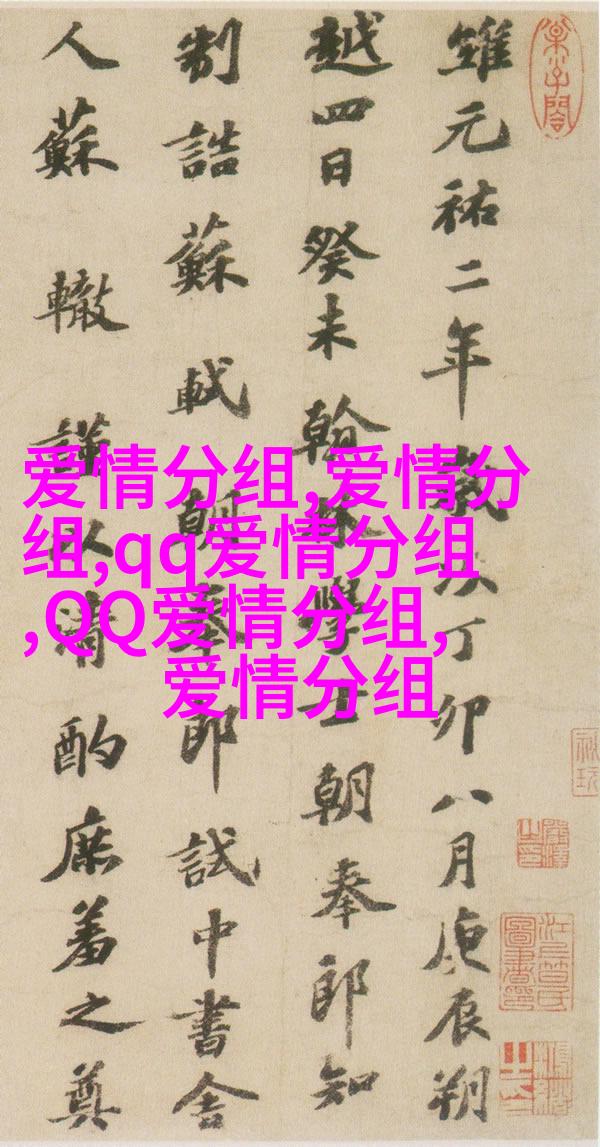 維元祐二年歲次丁卯八月庚辰朔
越四日癸未翰林學士朝奉郎知
制誥蘇軾朝奉郎試中書舍
人蘇轍謹以清酌庶羞之奠
爱情分组,爱情分
组,qq爱情分组
,QQ爱情分组,
爱情分组